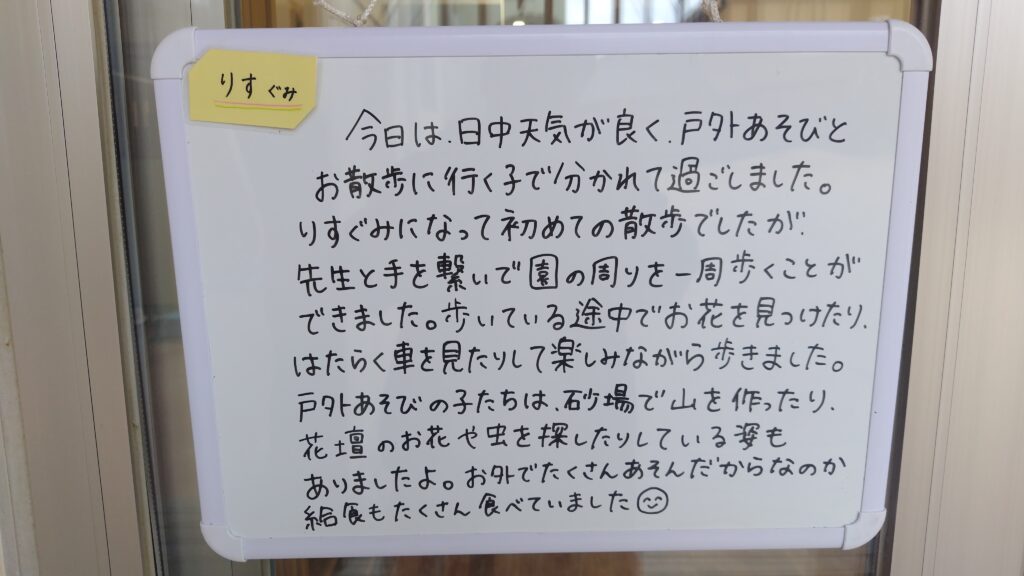 りすぐみ
今日は、日中天気が良く、戸外あそびと
お散歩に行く子で分かれて過ごしました。
りすぐみになって初めての散歩でしたが、
先生と手を繋いで園の周りを一周歩くことが
できました。歩いている途中でお花を見つけたり、
はたらく車を見たりして楽しみながら歩きました。
戸外あそびの子たちは、砂場で山を作ったり、
花壇のお花や虫を探したりしている姿も
ありましたよ。お外でたくさんあそんだからなのか
給食もたくさん食べていました☺